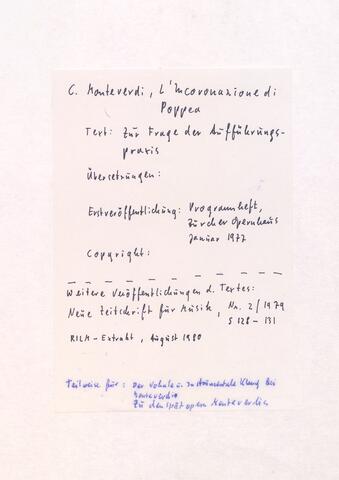 C. Monteverdi, L'Incoronazione di
Poppea
Text: Zur Frage der Aufführungs-
praxis
Übersetzungen:
Erstveröffentlichung: Programmheft,
Zürcher Opernhaus
Januar 1977
Copyright:
Weitere Veröffentlichungen d. Textes:
Neue Zeitschrift für Musik, Nr. 2/1979
S 128-131
RILM-Extrakt, August 1980
Teilweise für: Der vokale u. instrumentale Klang bei
Monteverdi
Zu den Spätopern Monteverdis